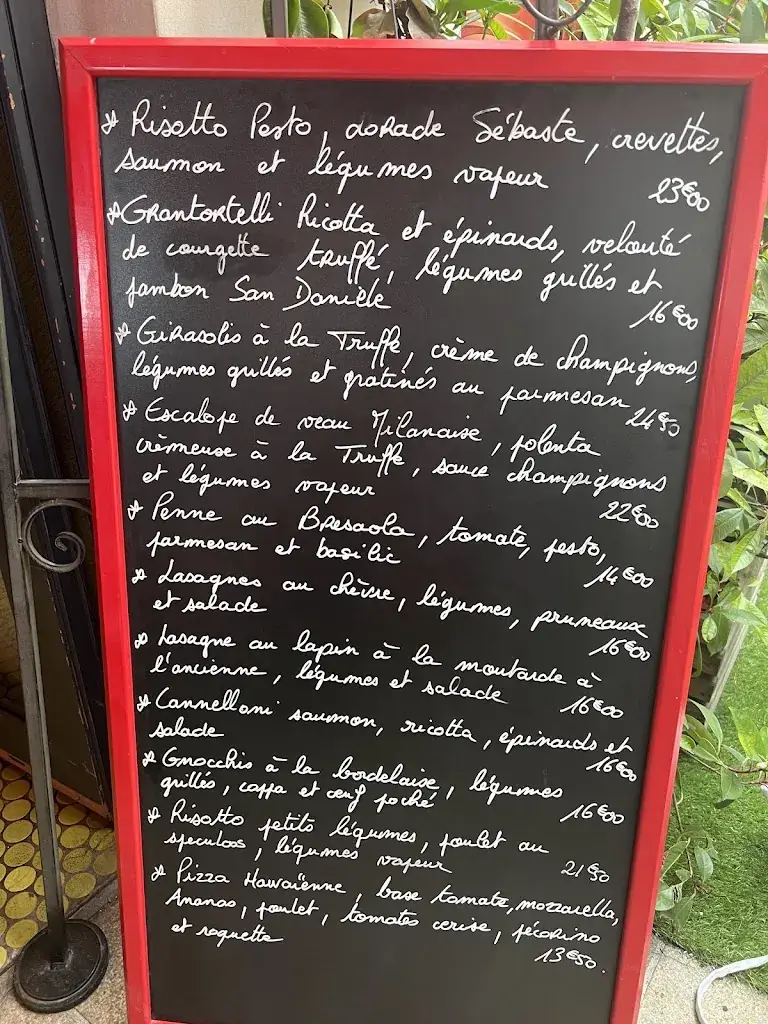 Risotto Pesto, dorade Sébaste, crevettes,
saumon et légumes vapeur
23€00
Grantortelli Ricotta et épinards, velouté
de courgette truffé, légumes grillés et
jambon San Danièle
16€00
Girasolis à la Truffe, crème de champignons,
légumes grillés et gratinés au parmesan
24€50
Escalope de veau Milanaise, polenta
crèmeuse à la Truffe, sauce champignons
et légumes vapeur
22€00
Penne au Bresaola, tomate, pesto,
parmesan et basilic
14€00
Lasagnes au chèvre, légumes, pruneaux
et salade
16€00
Lasagne au lapin à la moutarde à
l'ancienne, légumes et salade
16€00
Cannelloni saumon, ricotta, épinards et
salade
16€00
Gnocchis à la bordelaise, légumes
grillés, coppa et œuf poché
16€00
Risotto petits légumes, poulet au
speculoos, légumes vapeur
21€50
Pizza Hawaïenne, base tomate, mozzarella,
Ananas, poulet, tomates cerise, pécorino
et roquette
13€50.